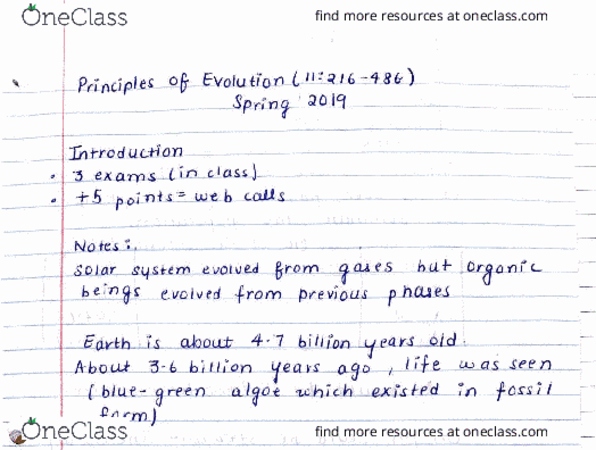 OneClass find more resources at oneclass.com
Principles of Evolution (11:216-486)
Spring 2019
Introduction
• 3 exams (in class)
• +5 points = web calls
Notes:.
Solar system evolved from gases but organic
beings evolved from previous phases
Earth is about 4.7 billion years old.
About 3.6 billion years ago, life was seen
(blue-green algae which existed in fossil
form)
OneClass find more resources at oneclass.com